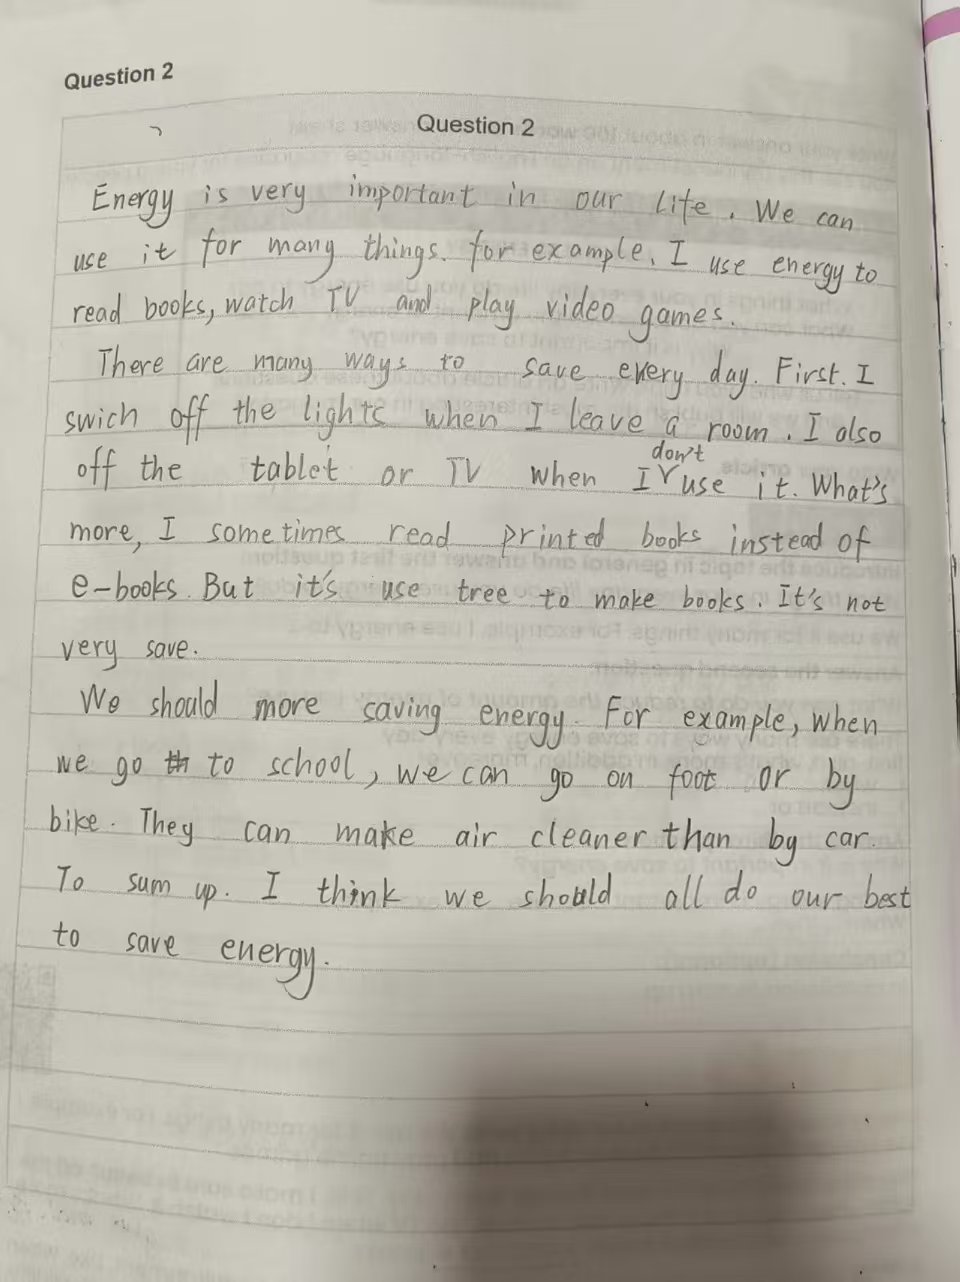 Question 2
Question 2
Energy is very important in our life. We can
use it for many things. for example, I use energy to
read books, watch TV and play video games.
There are many ways to save every day. First. I
swich off the lights when I leave a room. I also
don't
off the tablet or TV when I use it. What's
more, I sometimes read printed books instead of
e-books. But it's use tree to make books. It's not
very save.
We should more saving energy. For example, when
we go th to school, we can go on foot or by
bike. They can make air cleaner than by car.
To sum up. I think we should all do our best
to save energy.